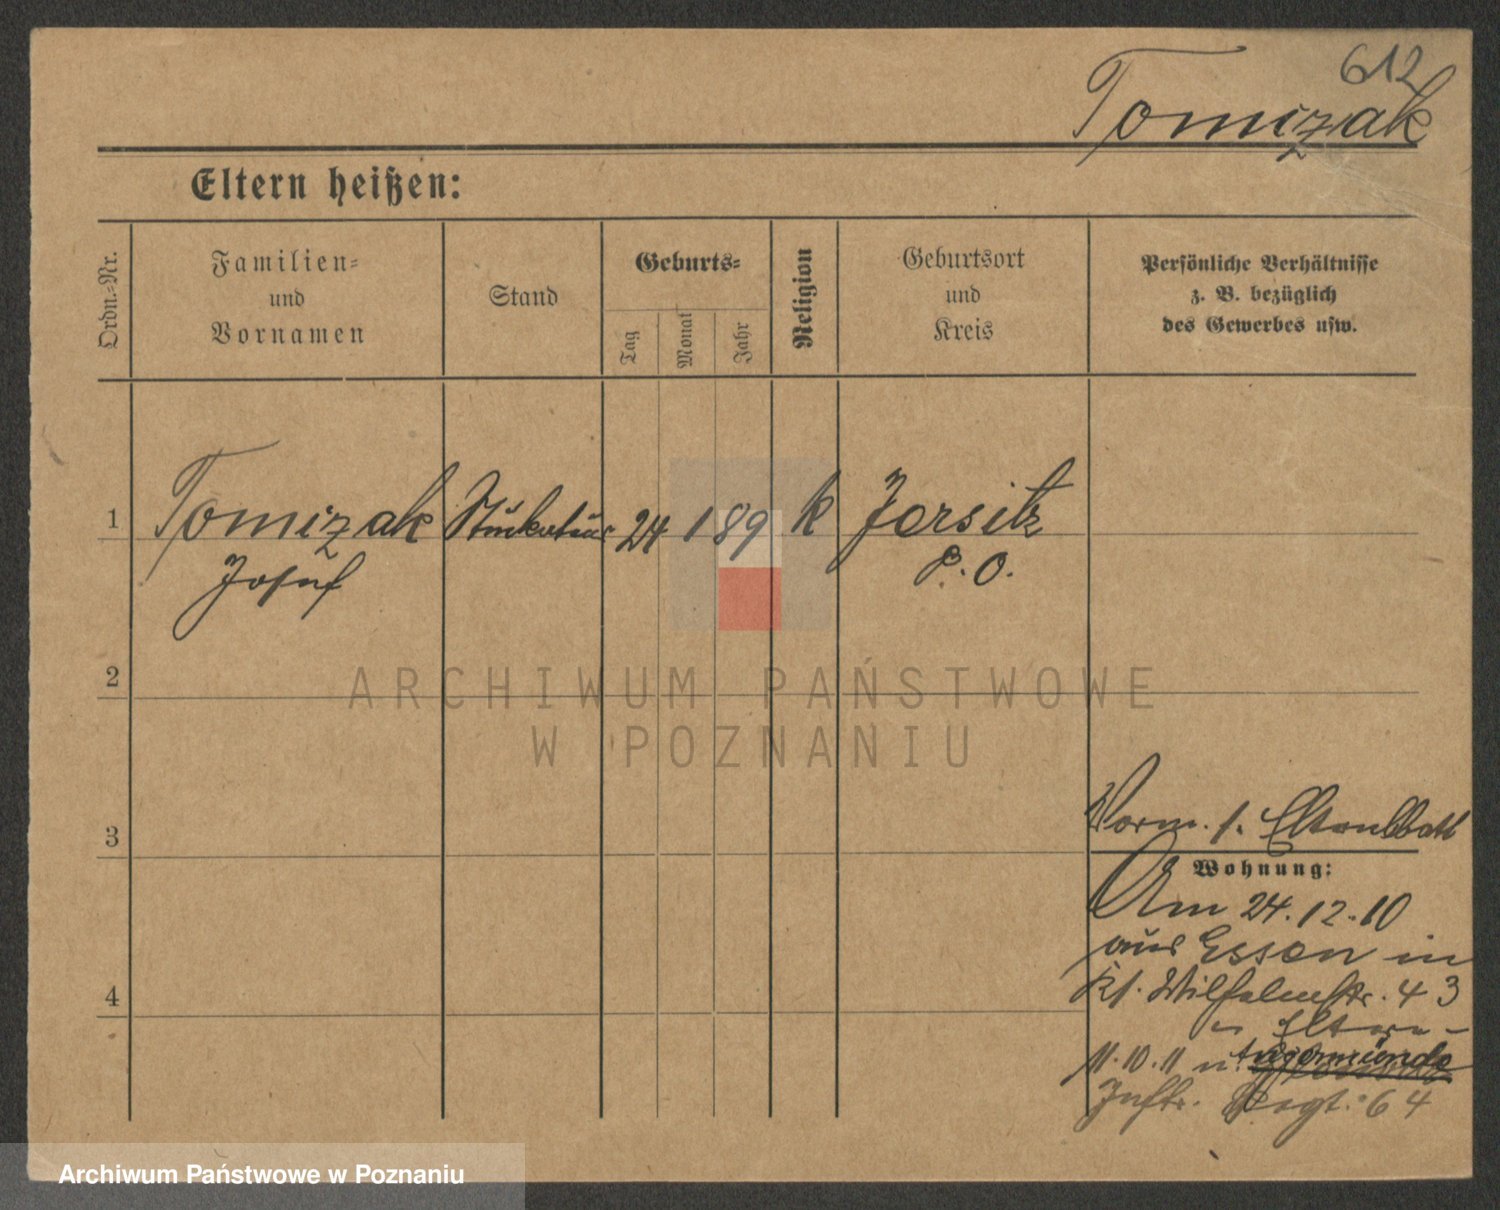 612
Tomizak
Eltern heißen:
Ordn.-Nr.
Familien-
und
Vornamen
Stand
Geburts-
Tag
Monat
Jahr
Religion
Geburtsort
und
Kreis
Persönliche Verhältnisse
z. B. bezüglich
des Gewerbes usw.
1 Tomizak Stukateur 24 1 89 k Jersitz
Josef P. O.
2
ARCHIWUM PAŃSTWOWE
W POZNANIU
3
Vorm. s.
Wohnung:
Am 24.12.10
aus Essen in
Kl. Wilhelmstr. 43
Eltern
11.10.11 n Angermünde
Inftr. Regt. 64
4
Archiwum Państwowe w Poznaniu